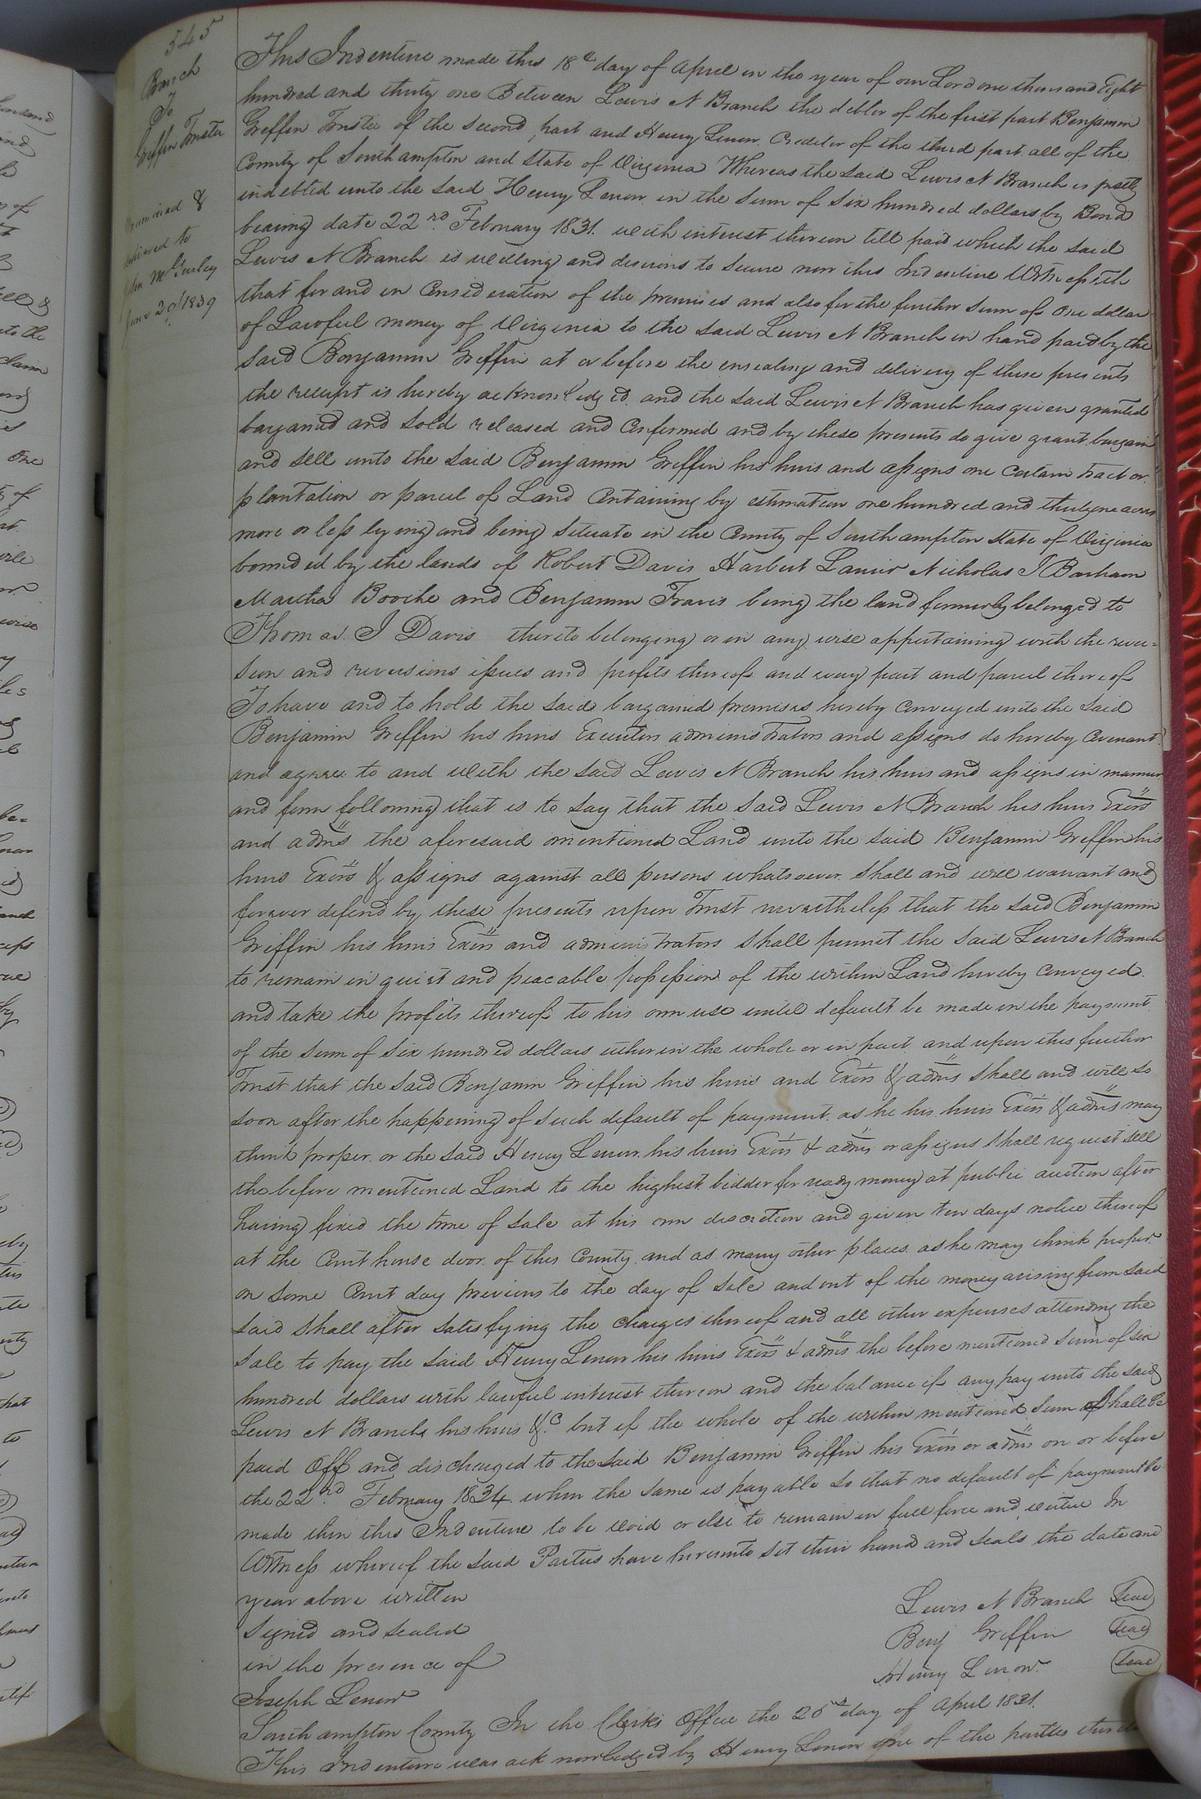 545
Branch
To
Griffin Trustee
Examined &
delivered to
John McGurley
June 20 1839
This Indenture made this 18th day of April in the year of our Lord one thousand Eight
hundred and thirty one Between Lewis N Branch the debtor of the first part Benjamin
Griffin Trustee of the second part and Henry Lenow Creditor of the third part all of the
County of Southampton and State of Virginia Whereas the said Lewis N Branch is justly
indebted unto the said Henry Lenow in the sum of six hundred dollars by Bond
bearing date 22nd February 1831. with interest thereon till paid which the said
Lewis N Branch is willing and desirous to secure now this Indenture Witnesseth
that for and in Consideration of the premises and also for the further sum of one dollar
of Lawful money of Virginia to the said Lewis N Branch in hand paid by the
said Benjamin Griffin at or before the ensealing and delivery of these presents
the receipt is hereby acknowledged and the said Lewis N Branch has given granted
bargained and sold released and Confirmed and by these presents do give grant bargain
and sell unto the said Benjamin Griffin his heirs and assigns one Certain tract or
plantation or parcel of Land Containing by estimation one hundred and thirty one acres
more or less lying and being situate in the County of Southampton State of Virginia
bounded by the lands of Robert Davis Harbert Lanier Nicholas J Barham
Martha Boothe and Benjamin Travis being the land formerly belonged to
Thomas J Davis thereto belonging or in any wise appertaining with the rever=
sion and reversions issues and profits thereof and every part and parcel thereof
To have and to hold the said bargained premises hereby Conveyed unto the said
Benjamin Griffin his heirs Executors administrators and assigns do hereby Covenant
and agree to and with the said Lewis N Branch his heirs and assigns in manner
and form following that is to say that the said Lewis N Branch his heirs Exors
and adms the aforesaid mentioned Land unto the said Benjamin Griffin his
heirs Exors & assigns against all persons whatsoever shall and will warrant and
forever defend by these presents upon Trust nevertheless that the said Benjamin
Griffin his heirs Exors and administrators shall permit the said Lewis N Branch
to remain in quiet and peacable possession of the within Land hereby Conveyed
and take the profits thereof to his own use until default be made in the payment
of the sum of six hundred dollars either in the whole or in part and upon this further
Trust that the said Benjamin Griffin his heirs and Exors & adms shall and will so
soon after the happening of such default of payment as he his heirs Exors & adms may
think proper or the said Henry Lenow his heirs Exors & adms or assigns shall request sell
the before mentioned Land to the highest bidder for ready money at public auction after
having fixed the time of sale at his own discretion and given ten days notice thereof
at the Court house door of this County and as many other places as he may think proper
on some Court day previous to the day of sale and out of the money arising from said
said shall after satisfying the charges thereof and all other expenses attending the
sale to pay the said Henry Lenow his heirs Exors & adms the before mentioned sum of six
hundred dollars with lawful interest thereon and the balance if any pay unto the said
Lewis N Branch his heirs &c. but if the whole of the within mentioned sum shall be
paid off and discharged to the said Benjamin Griffin his Exors or adms on or before
the 22nd February 1834 when the same is payable so that no default of payment be
made then this Indenture to be void or else to remain in full force and virtue In
Witness whereof the said Parties have hereunto set their hand and seals the date and
year above written
Lewis N Branch Seal
Signed and sealed
Benj Griffin Seal
in the presence of
Henry Lenow Seal
Joseph Lenow
Southampton County In the Clerks Office the 26th day of April 1831.
This Indenture was acknowledged by Henry Lenow one of the parties thereto